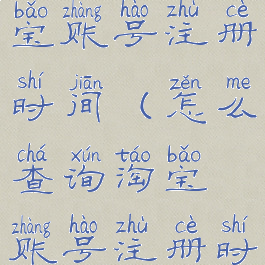 bǎo zhàng hào zhù cè
宝账号注册
shí jiān zěn me
时间(怎么
chá xún táo bǎo
查询淘宝
zhàng hào zhù cè shí
账号注册时